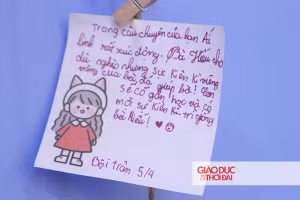 Trong câu chuyện của bạn Ái
linh rất xúc động. Bà Hiểu cho
dù nghèo nhưng sự kiên kì vững
vàng của bà đã giúp bà! Con
sẽ cố gắn học và có
mỗi sự kiên kì trì giống
bà Hiểu! ♥
Đội trân 5/4
GIÁO DỤC
& THỜI ĐẠI